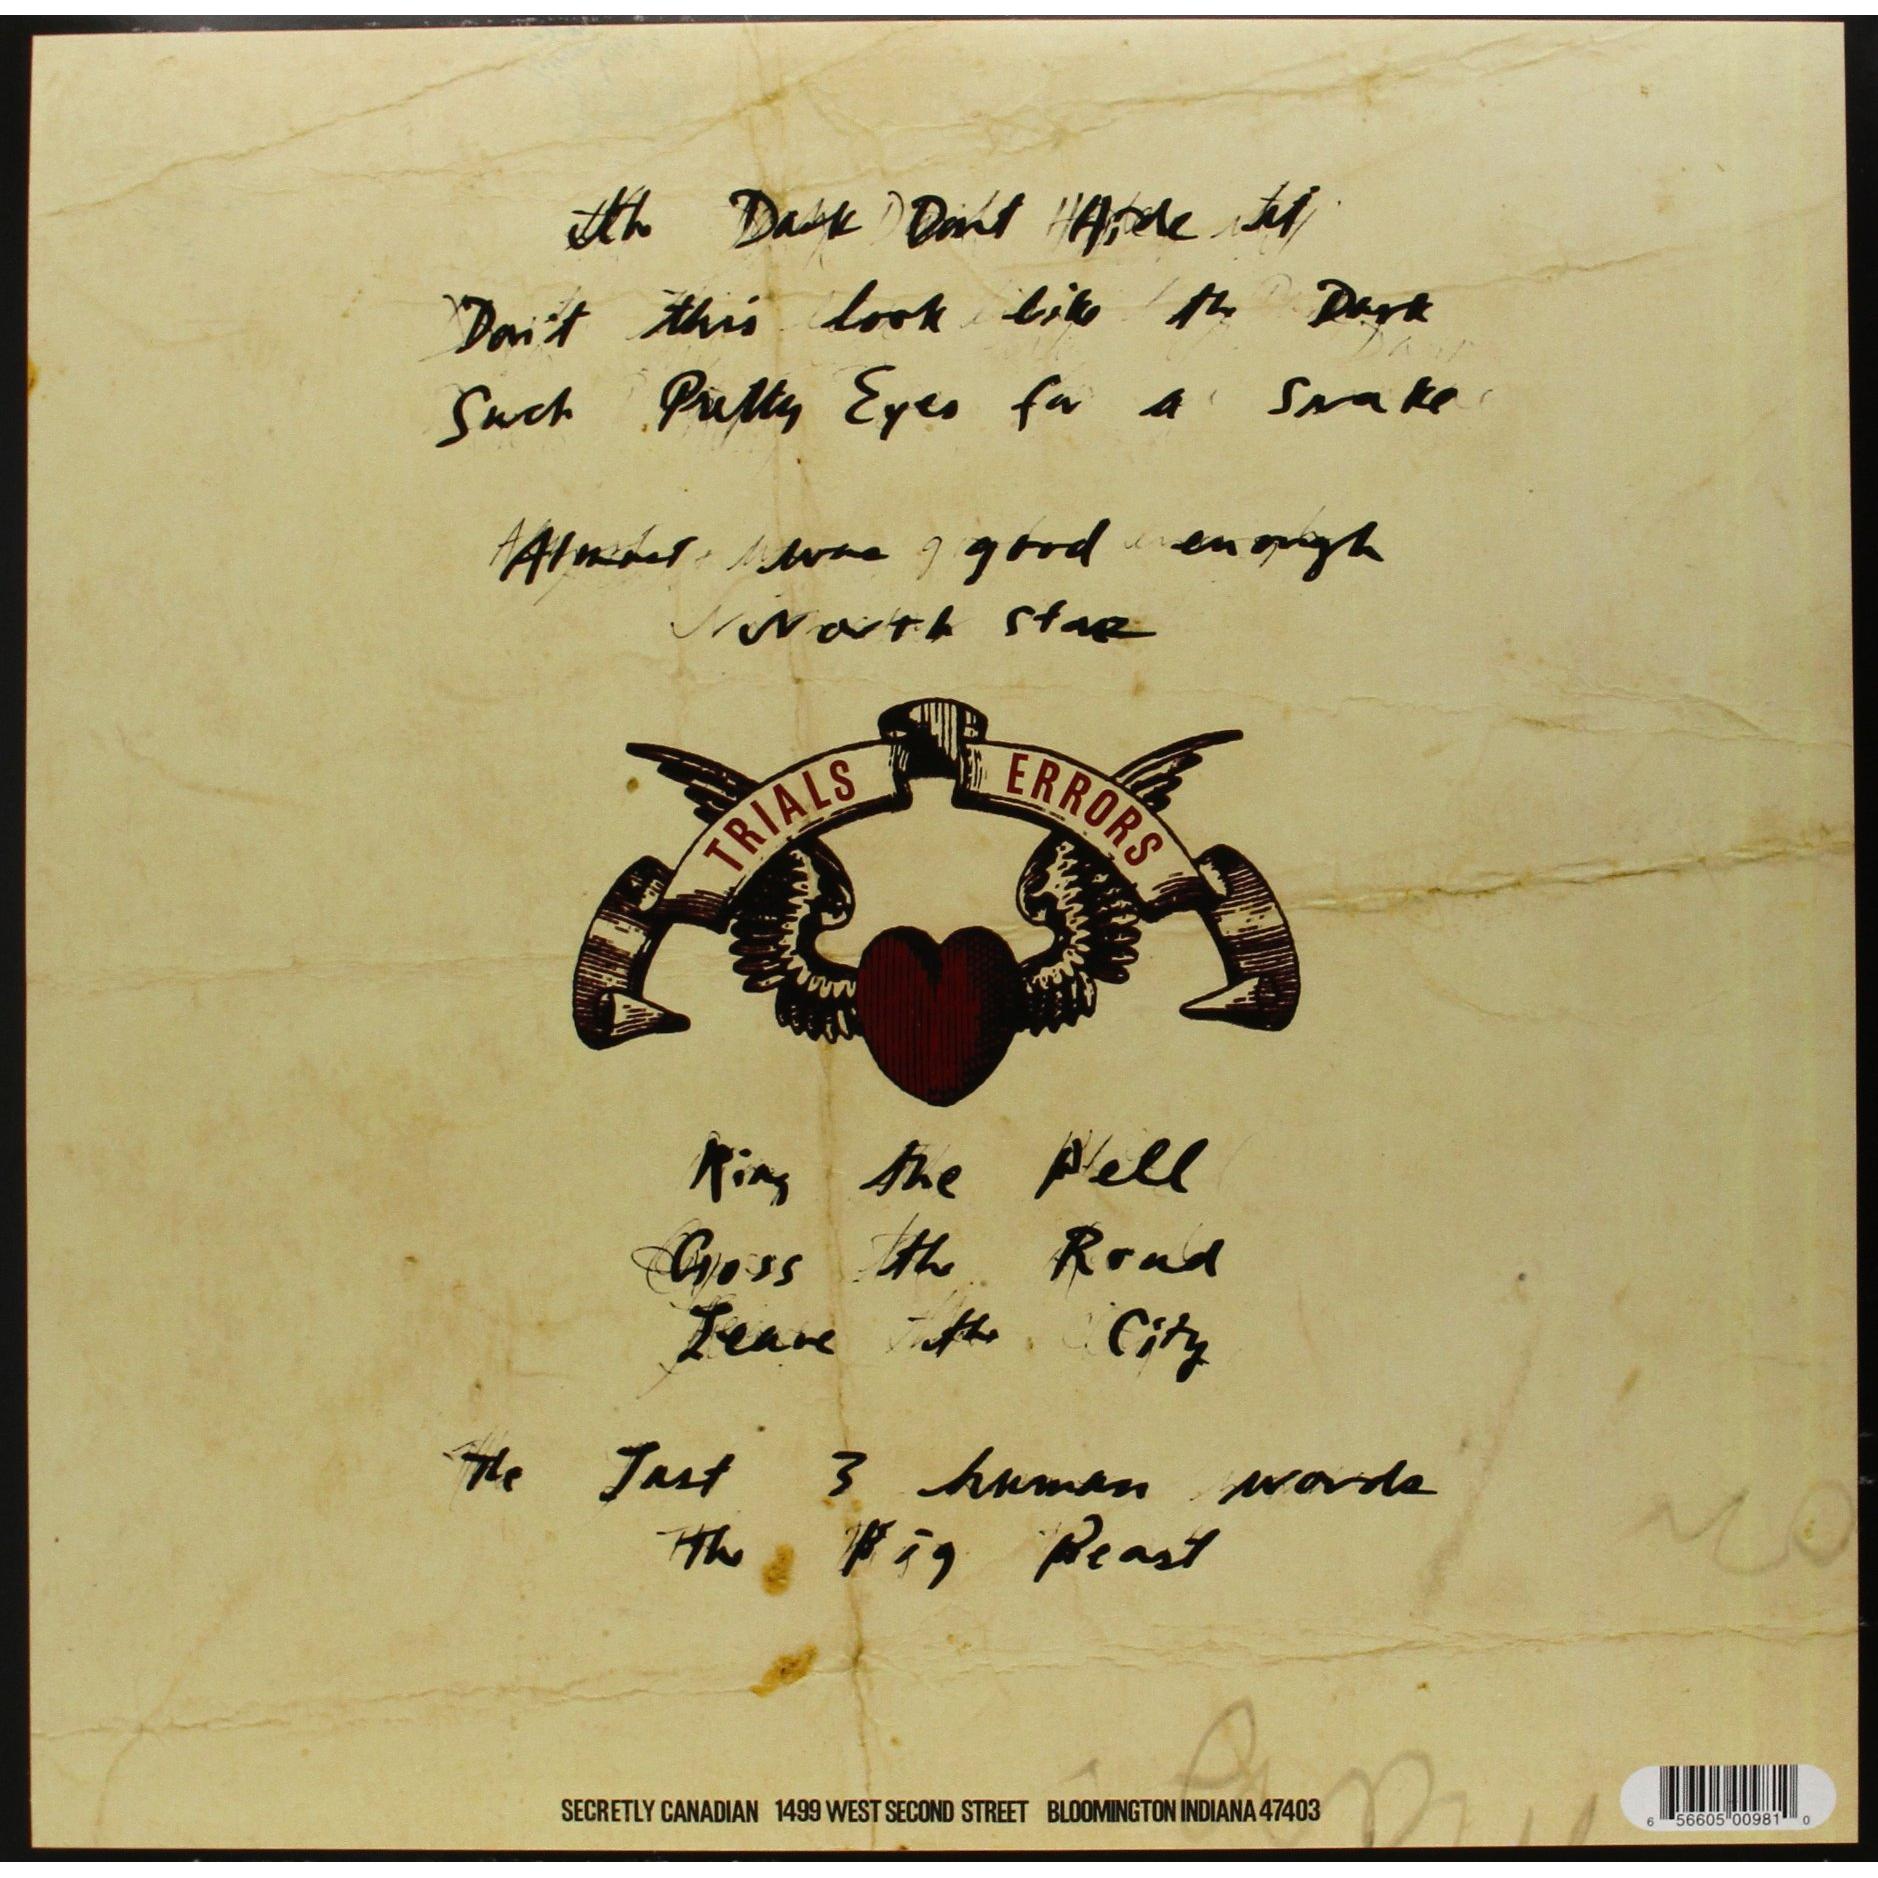 the Dark Don't Hide it
Don't this look like the Dark
Such Pretty Eyes for a Snake
Almost was good enough
North Star
TRIALS ERRORS
Ring the Bell
Cross the Road
Leave the City
The Last 3 human words
the Big Beast
SECRETLY CANADIAN 1499 WEST SECOND STREET BLOOMINGTON INDIANA 47403
6 56605 00981 0